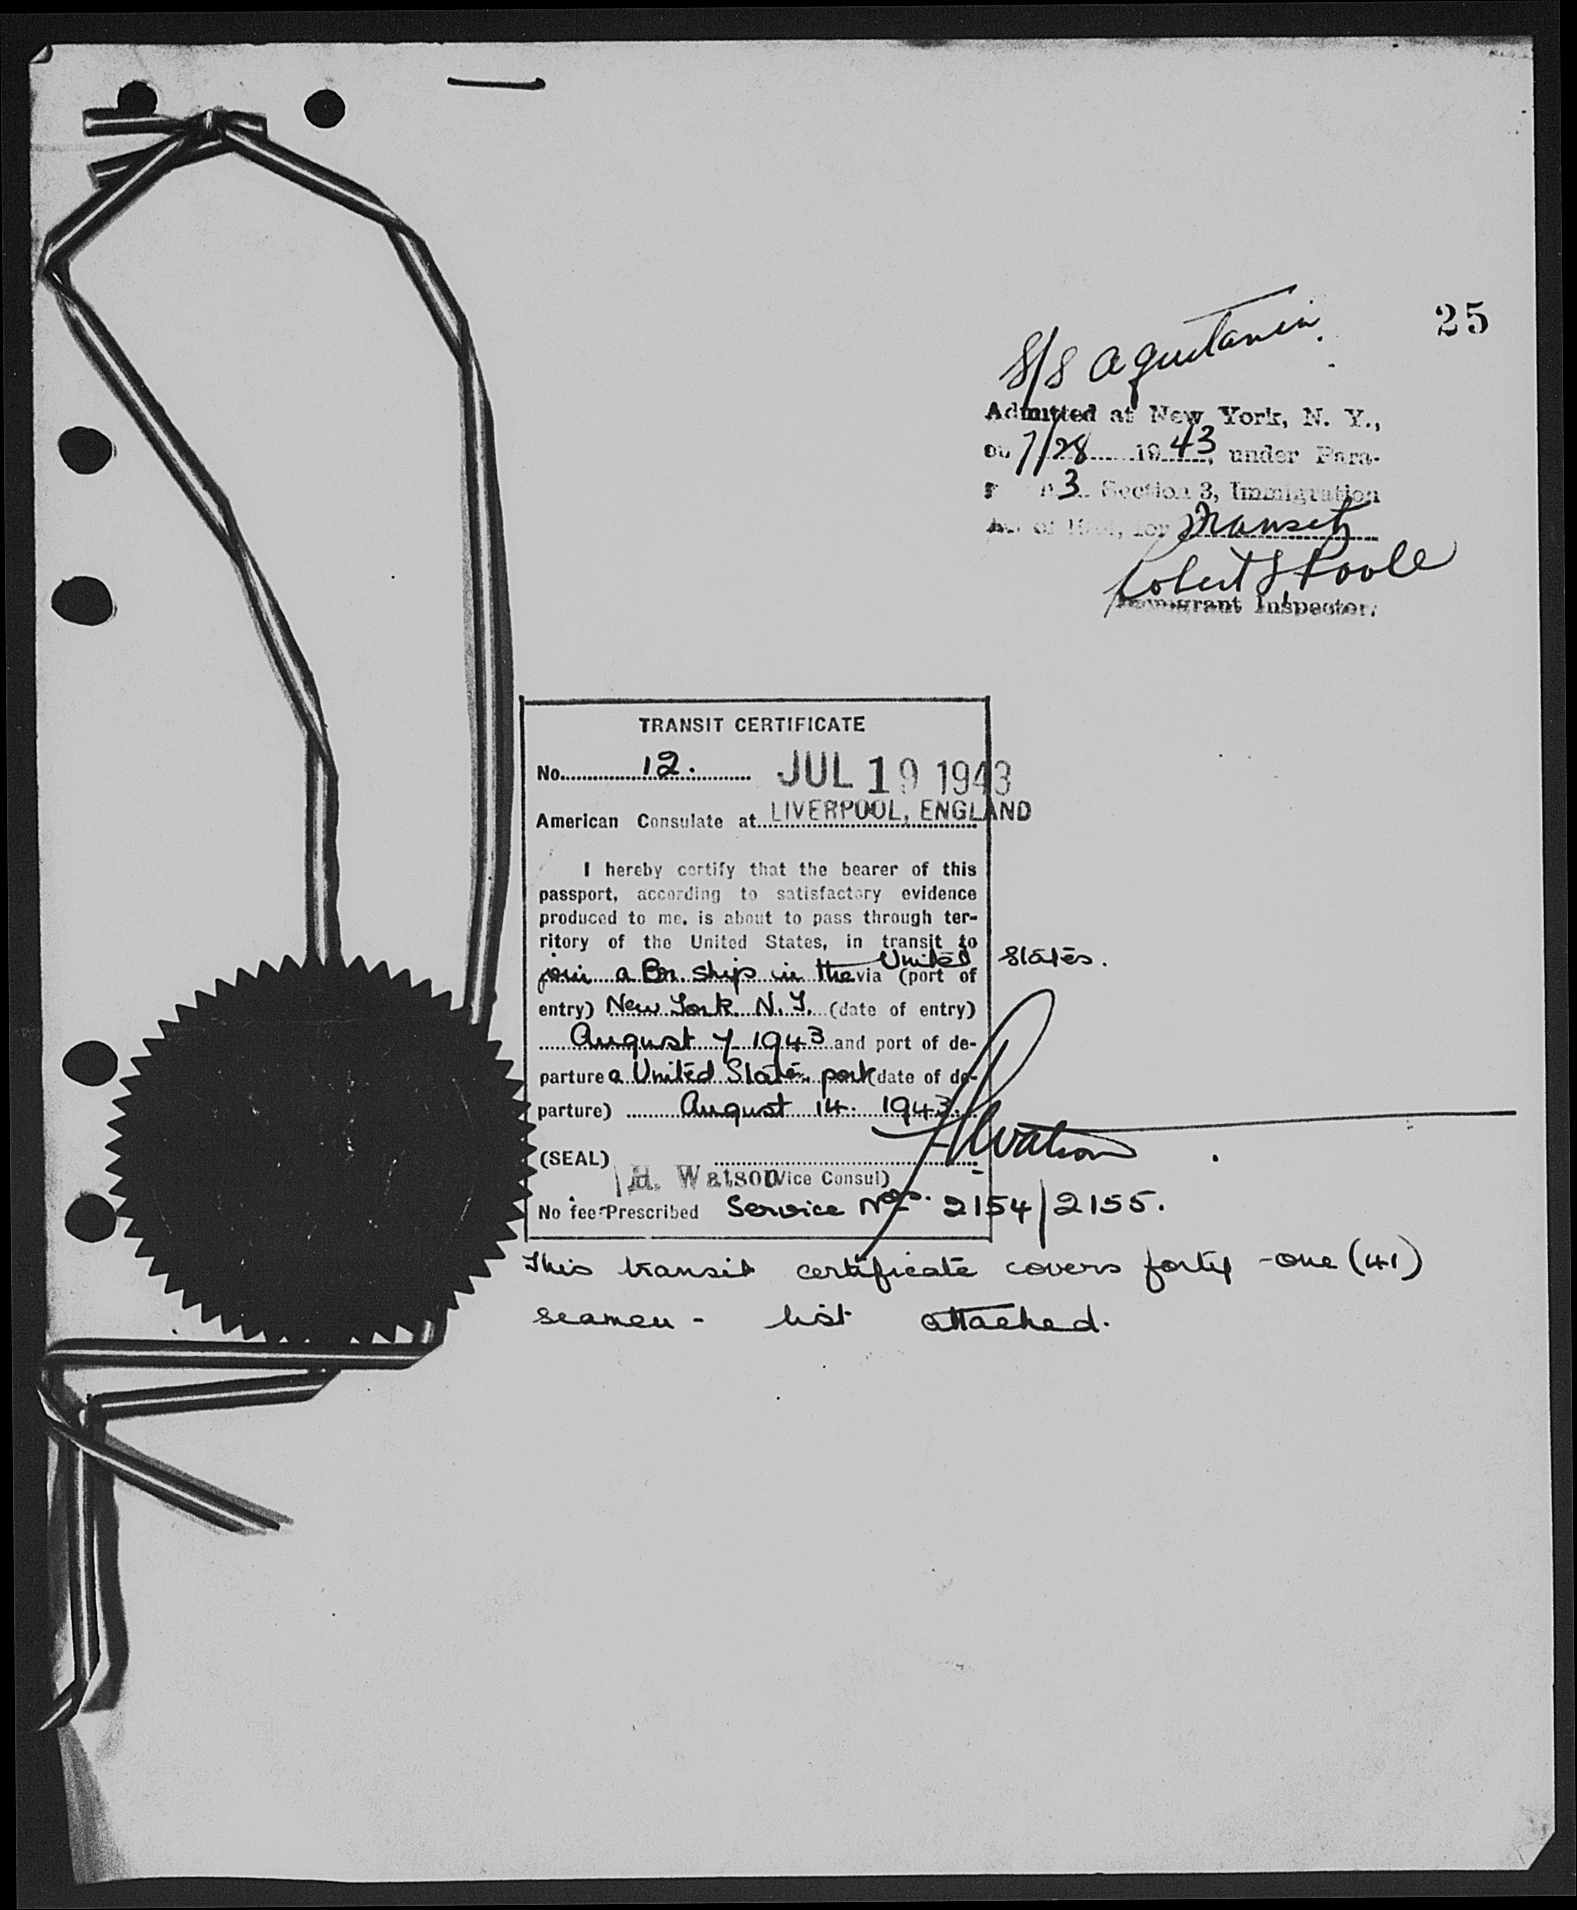 25
S/S Aquitania.
Admitted at New York, N. Y.,
on 7/28 1943, under Para-
3 Section 3, Immigration
of for Transit
Robert Poole
Immigrant Inspector.
TRANSIT CERTIFICATE
No. 12. JUL 19 1943
American Consulate at LIVERPOOL, ENGLAND
I hereby certify that the bearer of this
passport, according to satisfactory evidence
produced to me, is about to pass through ter-
ritory of the United States, in transit to
join a Br. ship in the United States. via (port of
entry) New York N.Y. (date of entry)
August 7 1943 and port of de-
parture a United States port (date of de-
parture) August 14. 1943.
HWatson
(SEAL)
H. Watson Vice Consul)
No fee Prescribed Service Nos. 2154/2155.
This transit certificate covers forty-one (41)
seamen - list attached.